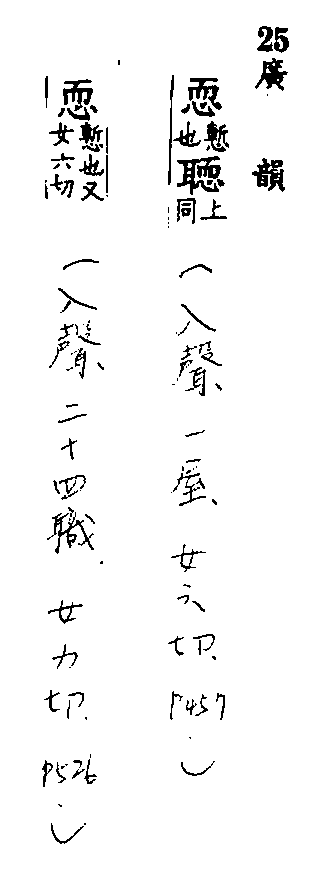 25 廣韻
恧慙也 聰上同 (入聲、一屋、女六切、P457。)
恧慙也又女六切 (入聲、二十四職、女力切、P526。)